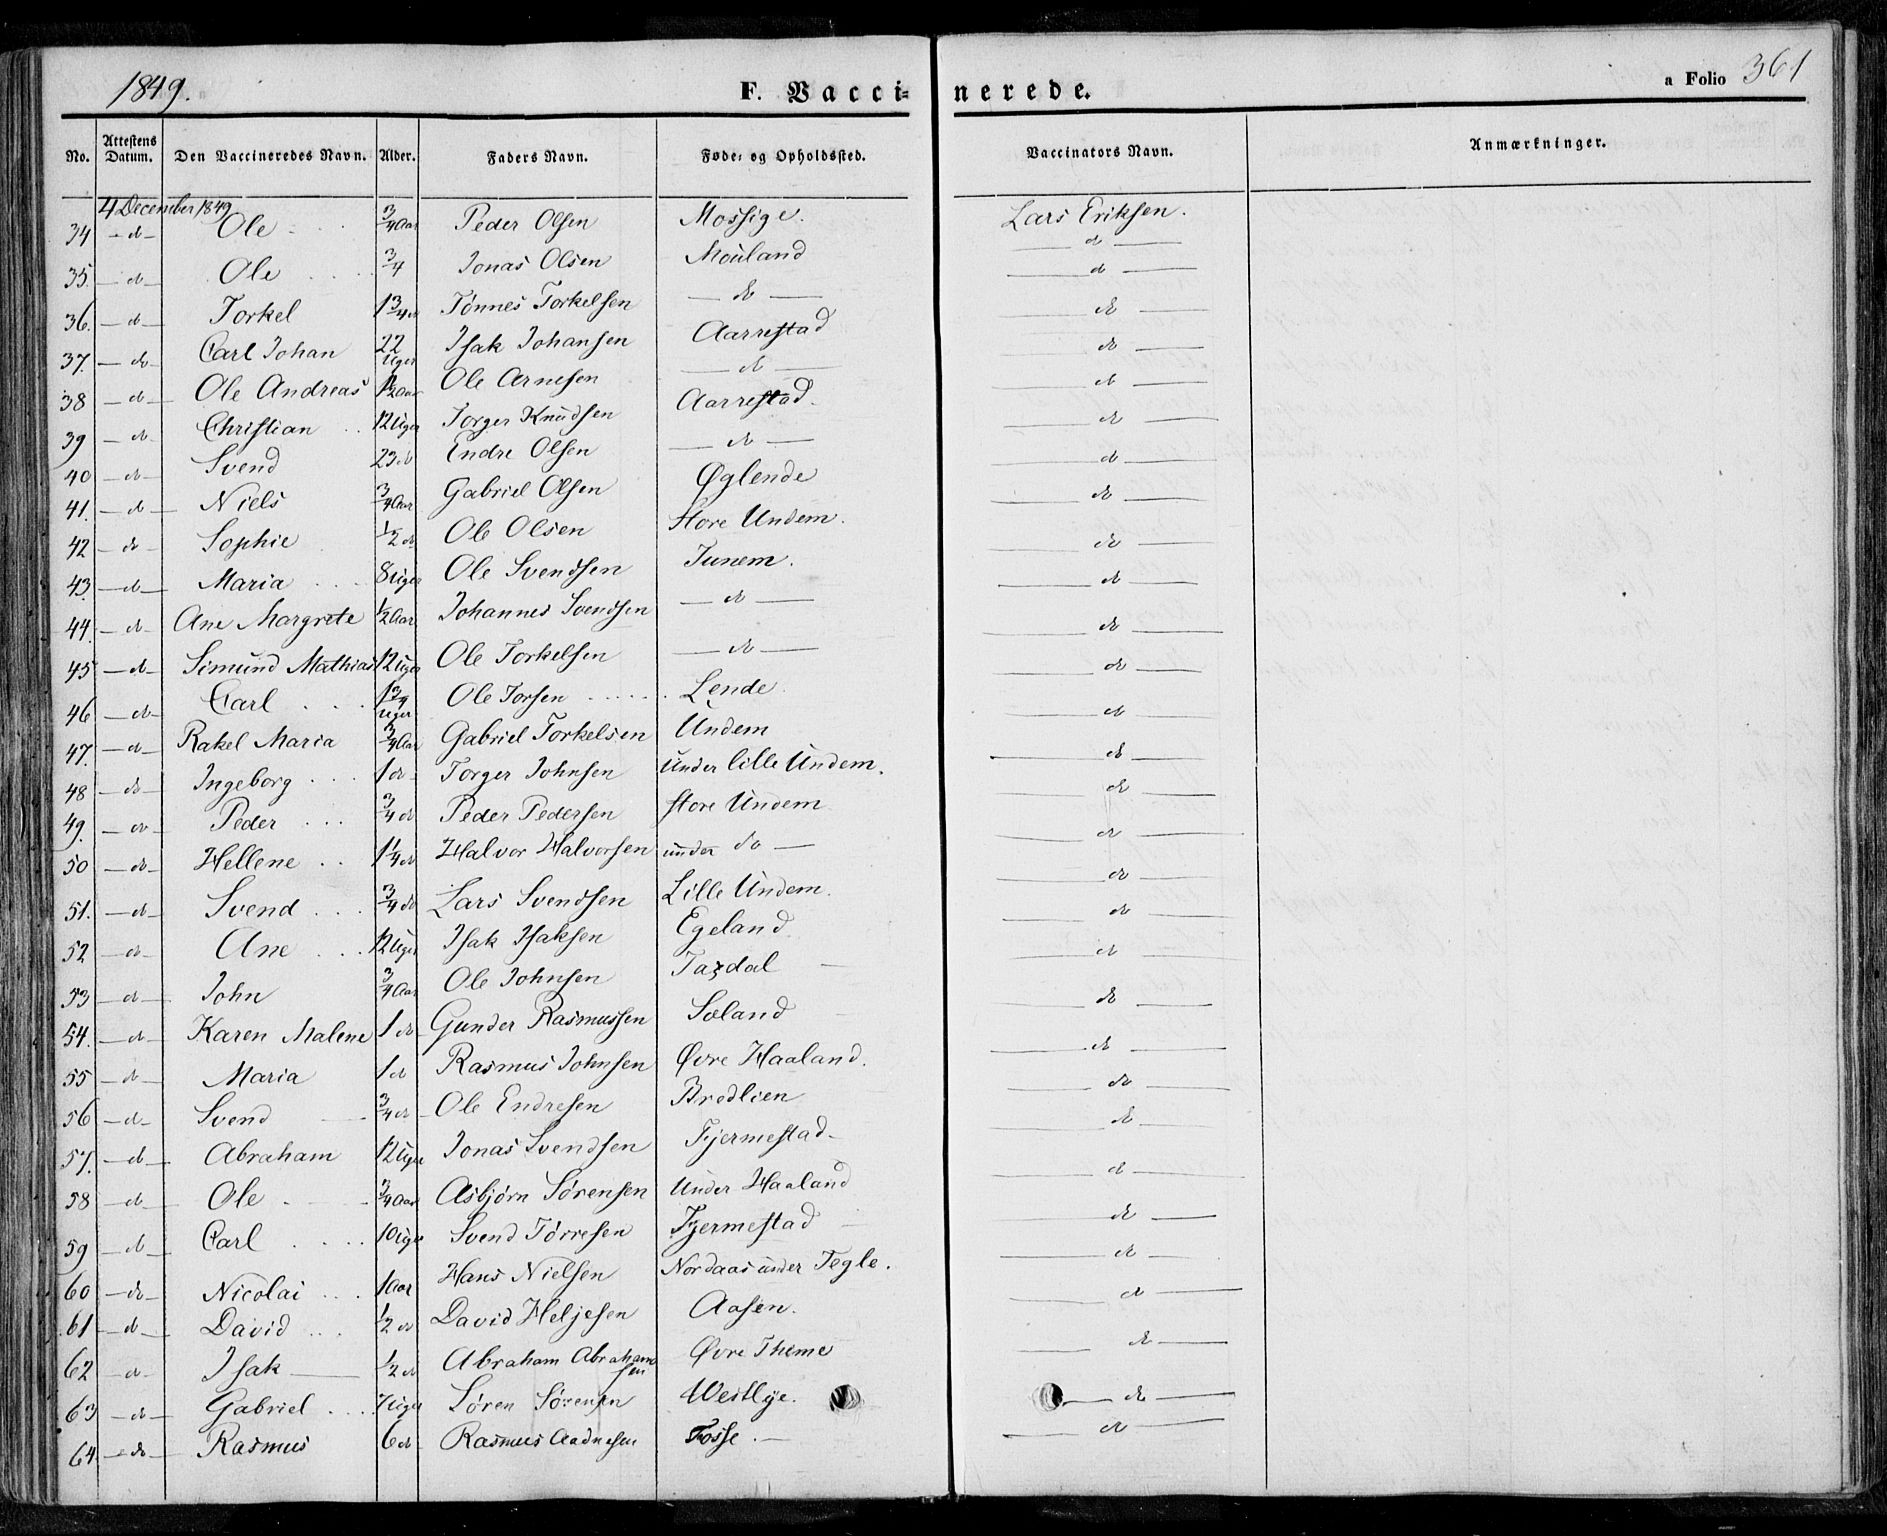 1849. F. Vaccinerede. a Folio 361
No. Attestens Datum. Den Vaccineredes Navn. Alder. Faders Navn. Føde- og Opholdssted. Vaccinators Navn. Anmærkninger.
4 December 1849
34 - do - Ole 3/4 Aar Peder Olsen Mossige. Lars Eriksen.
35. - do - Ole 3/4 Jonas Olsen Mouland - do -
36. - do - Torkel 1 3/4 do Tønnes Torkelsen - do - - do -
37. - do - Carl Johan 22 Uger Isak Johansen Aarrestad - do -
38 - do - Ole Andreas 1 1/2 Aar Ole Arnesen - do - - do -
39 - do - Christian 12 Uger Torger Knudsen Aarrestad. - do -
40 - do - Svend 23 do Endre Olsen - do - - do -
41. - do - Niels 3/4 Aar Gabriel Olsen Øglende - do -
42 - do - Sophie 1/2 do Ole Olsen Store Undem. - do -
43. - do - Maria 8 Uger Ole Svendsen Tunem. - do -
44. - do - Ane Margrete 1/2 Aar Johannes Svendsen - do - - do -
45 - do - Simund Mathias 12 Uger Ole Torkelsen - do - - do -
46 - do - Carl 1 3/4 Uger Ole Torsen Lende. - do -
47. - do - Rakel Maria 3/4 Aar Gabriel Torkelsen Undem - do -
48 - do - Ingeborg 1 do Torger Johnsen Under lille Undem. - do -
49. - do - Peder 3/4 do Peder Pedersen store Undem - do -
50 - do - Hellene 1 1/4 do Halvor Halvorsen under do - - do -
51. - do - Svend 3/4 do Lars Svendsen Lille Undem. - do -
52 - do - Ane 12 Uger Isak Isaksen Egeland. - do -
53 - do - John 3/4 Aar Ole Johnsen - do -
54. - do - Karen Malene 1 do Gunder Rasmussen Soland - do -
55 - do - Maria 1 do Rasmus Johnsen Øvre Haaland. - do -
56 - do - Svend 3/4 do Ole Endresen Bredlien - do -
57. - do - Abraham 12 Uger Jonas Svendsen Fjermestad - do -
58 - do - Ole 3/4 Aar Asbjørn Sørensen Under Haaland - do -
59 - do - Carl 10 Uger Svend Tørresen Fjermestad - do -
60 - do - Nicolai 1 Aar Hans Nielsen Nordaas under Tegle. - do -
61 - do - David 1/2 do David Heljesen Aasen. - do -
62 - do - Isak 1/2 do Abraham Abrahamsen Øvre Thime - do -
63 - do - Gabriel 7 Uger Søren Sørensen Westlye. - do -
64 - do - Rasmus 6 do Rasmus Aadnesen Fosse. - do -